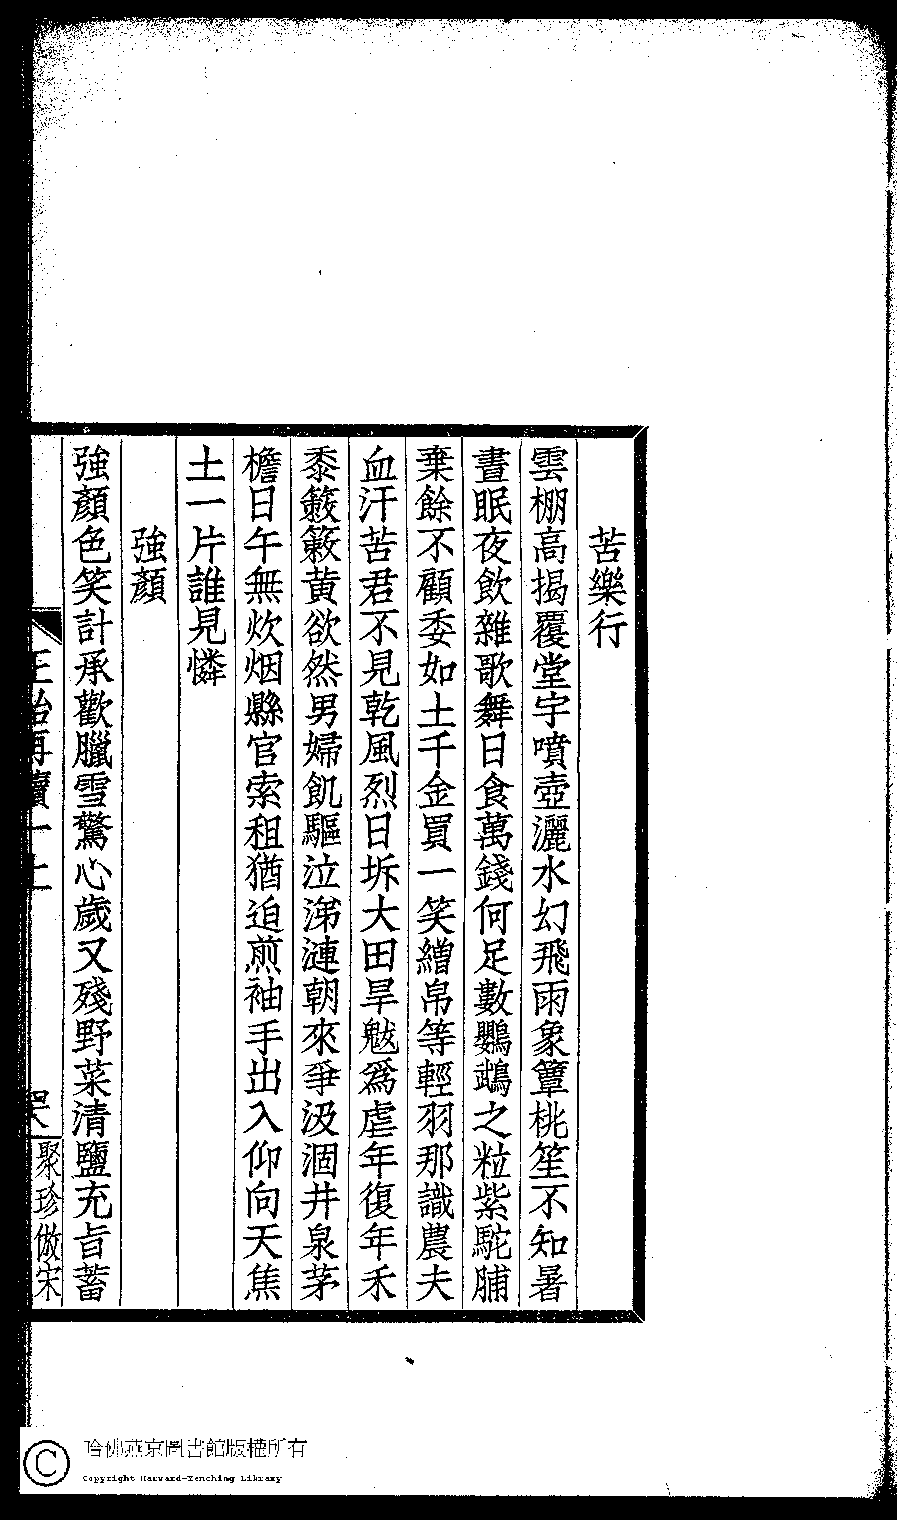 苦樂行
雲棚高揭覆堂宇噴壺灑水幻飛雨象簟桃笙不知暑
晝眠夜飲雜歌舞日食萬錢何足數鸚鵡之粒紫駝脯
棄餘不顧委如土千金買一笑繒帛等輕羽那識農夫
血汗苦君不見乾風烈日坼大田旱魃為虐年復年禾
黍簌簌黃欲然男婦飢驅泣涕漣朝來爭汲涸井泉茅
檐日午無炊烟縣官索租猶迫煎袖手出入仰向天焦
土一片誰見憐
強顏
強顏色笑計承歡臘雪驚心歲又殘野菜清鹽充旨蓄
聚珍倣宋
哈佛燕京圖書館版權所有
Copyright Harvard-Yenching Library